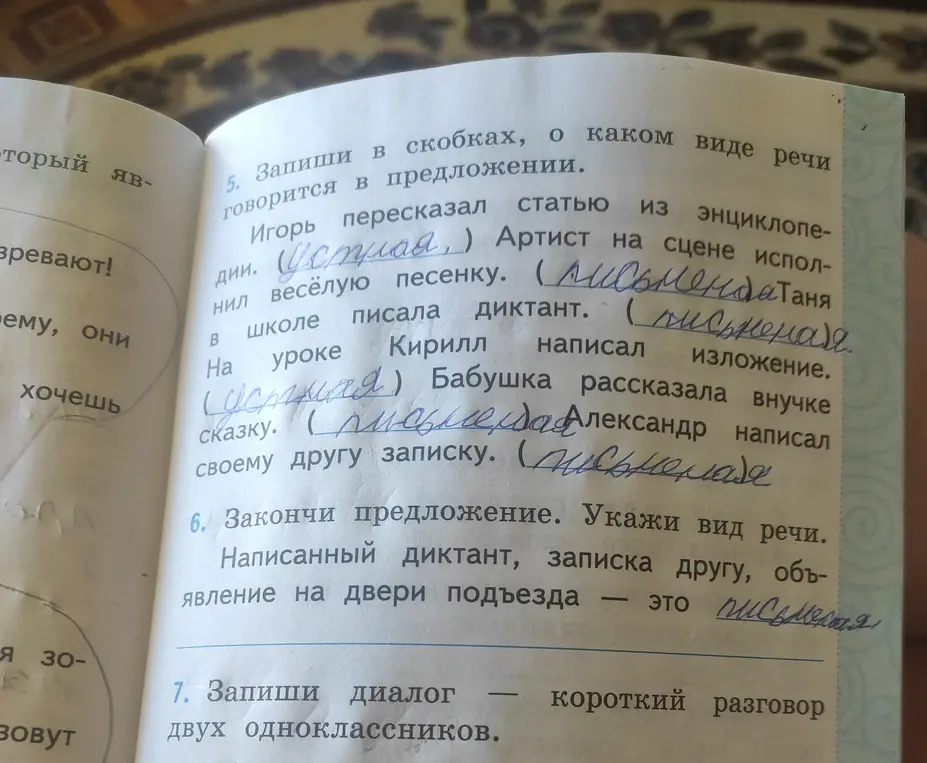 оторый яв-
зревают!
ему, они
хочешь
я зо-
зовут
5. Запиши в скобках, о каком виде речи
говорится в предложении.
Игорь пересказал статью из энциклопе-
дии. (устная.) Артист на сцене испол-
нил весёлую песенку. (письменная) Таня
в школе писала диктант. (письменая)
На уроке Кирилл написал изложение.
(устная) Бабушка рассказала внучке
сказку. (письменая) Александр написал
своему другу записку. (письменая)
6. Закончи предложение. Укажи вид речи.
Написанный диктант, записка другу, объ-
явление на двери подъезда — это письменая
7. Запиши диалог — короткий разговор
двух одноклассников.